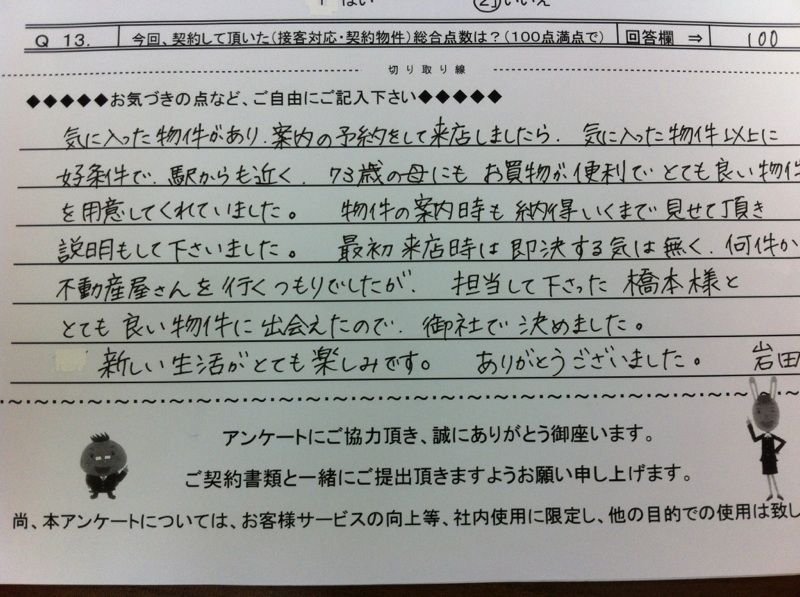 1 はい ②いいえ
Q 13. 今回、契約して頂いた(接客対応・契約物件)総合点数は?(100点満点で) 回答欄 ⇒ 100
切り取り線
◆◆◆◆◆お気づきの点など、ご自由にご記入下さい◆◆◆◆◆
気に入った物件があり、案内の予約をして来店しましたら、気に入った物件以上に
好条件で、駅からも近く、73歳の母にもお買物が便利でとても良い物件
を用意してくれていました。 物件の案内時も納得いくまで見せて頂き
説明もして下さいました。 最初来店時は即決する気は無く、何件か
不動産屋さんを行くつもりでしたが、 担当して下さった橋本様と
とても良い物件に出会えたので、御社で決めました。
新しい生活がとても楽しみです。 ありがとうございました。 岩田
アンケートにご協力頂き、誠にありがとう御座います。
ご契約書類と一緒にご提出頂きますようお願い申し上げます。
尚、本アンケートについては、お客様サービスの向上等、社内使用に限定し、他の目的での使用は致し